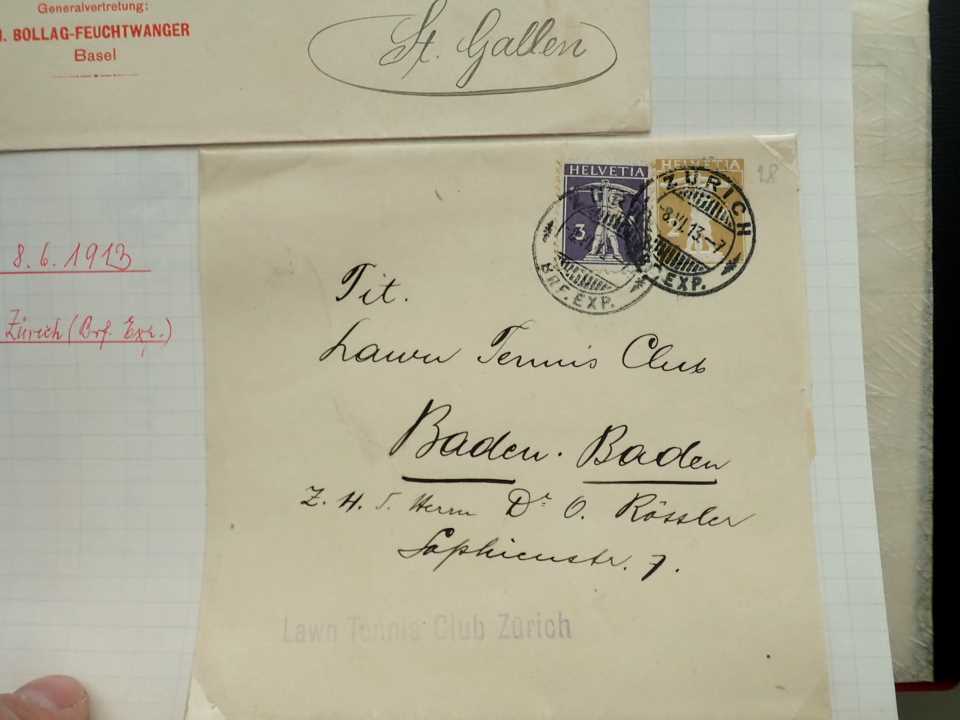 Generalvertretung:
BOLLAG-FEUCHTWANGER
Basel
St. Gallen
8.6.1913
Zürich (Brf. Exp.)
HELVETIA
3
BRF. EXP.
HELVETIA
2
ZÜRICH
-8.VI.13-7
EXP.
18
Tit.
Lawn Tennis Club
Baden-Baden
Z. H. Herrn Dr O. Rössler
Sophienstr. 7.
Lawn Tennis Club Zürich